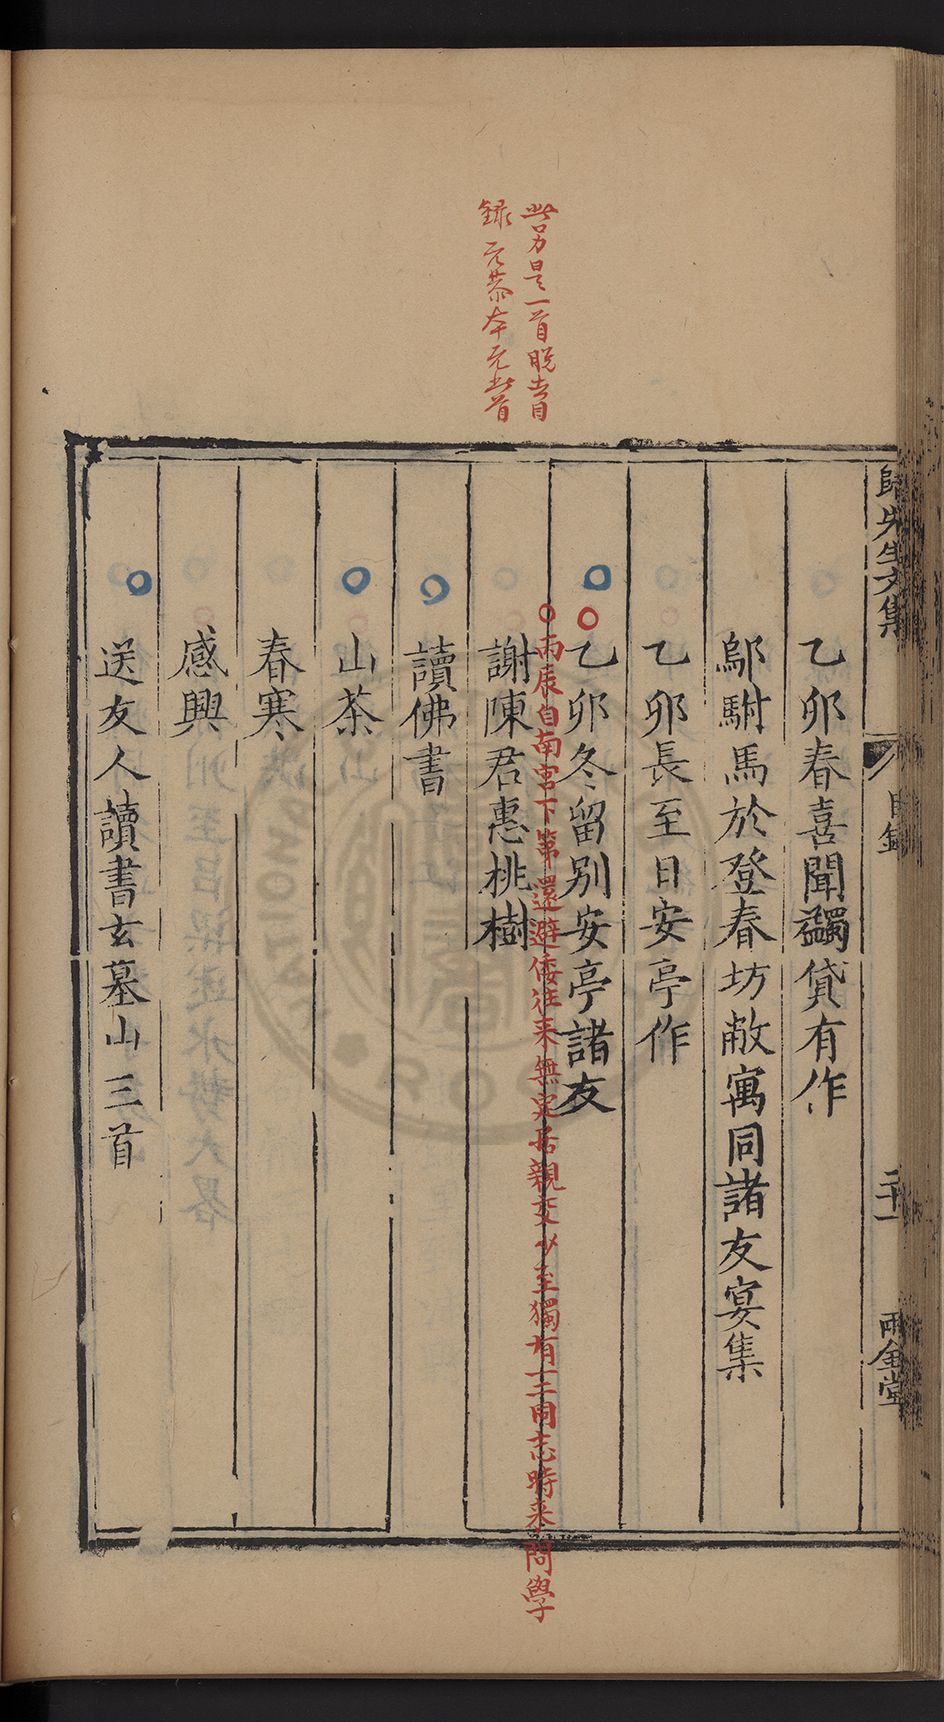 歸先生文集
目錄
二十一
雨金堂
乙卯春喜聞蠲貸有作
鄔駙馬於登春坊敝寓同諸友宴集
乙卯長至日安亭作
乙卯冬留別安亭諸友
丙辰自南宮下第還避倭往來無定居親交少至獨有一二同志時來問學
謝陳君惠桃樹
讀佛書
山茶
春寒
感興
送友人讀書玄墓山三首
此另是一首脫去目
錄元恭本无此首